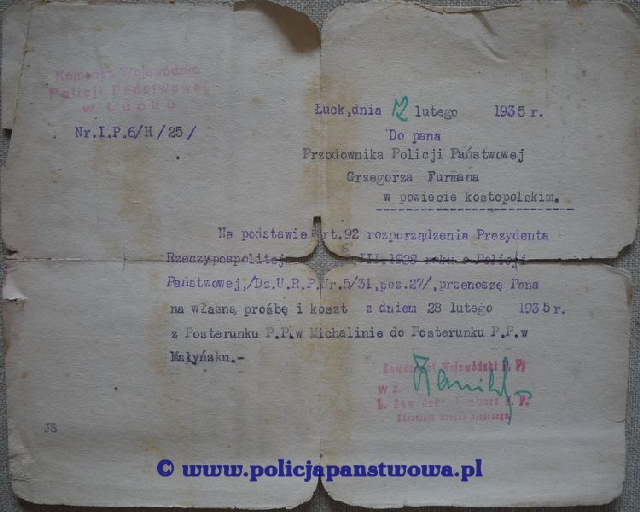 Komenda Wojewódzka
Policji Państwowej
w Łucku
Nr.I.P.6/H/25/
Łuck,dnia 12 lutego 1935 r.
Do pana
Przodownika Policji Państwowej
Grzegorza Furmana
w powiecie kostopolskim.
Na podstawie Art.92 rozporządzenia Prezydenta
Rzeczypospolitej III,1928 roku o Policji
Państwowej,/Dz.U.R.P.Nr.5/31,poz.27/,przenoszę Pana
na własną prośbę i koszt z dniem 28 lutego 1935 r.
z Posterunku P.P.w Michalinie do Posterunku P.P.w
Małyńsku.-
Komendant Wojewódzki P.P.
w z.
JS
© www.policjapanstwowa.pl